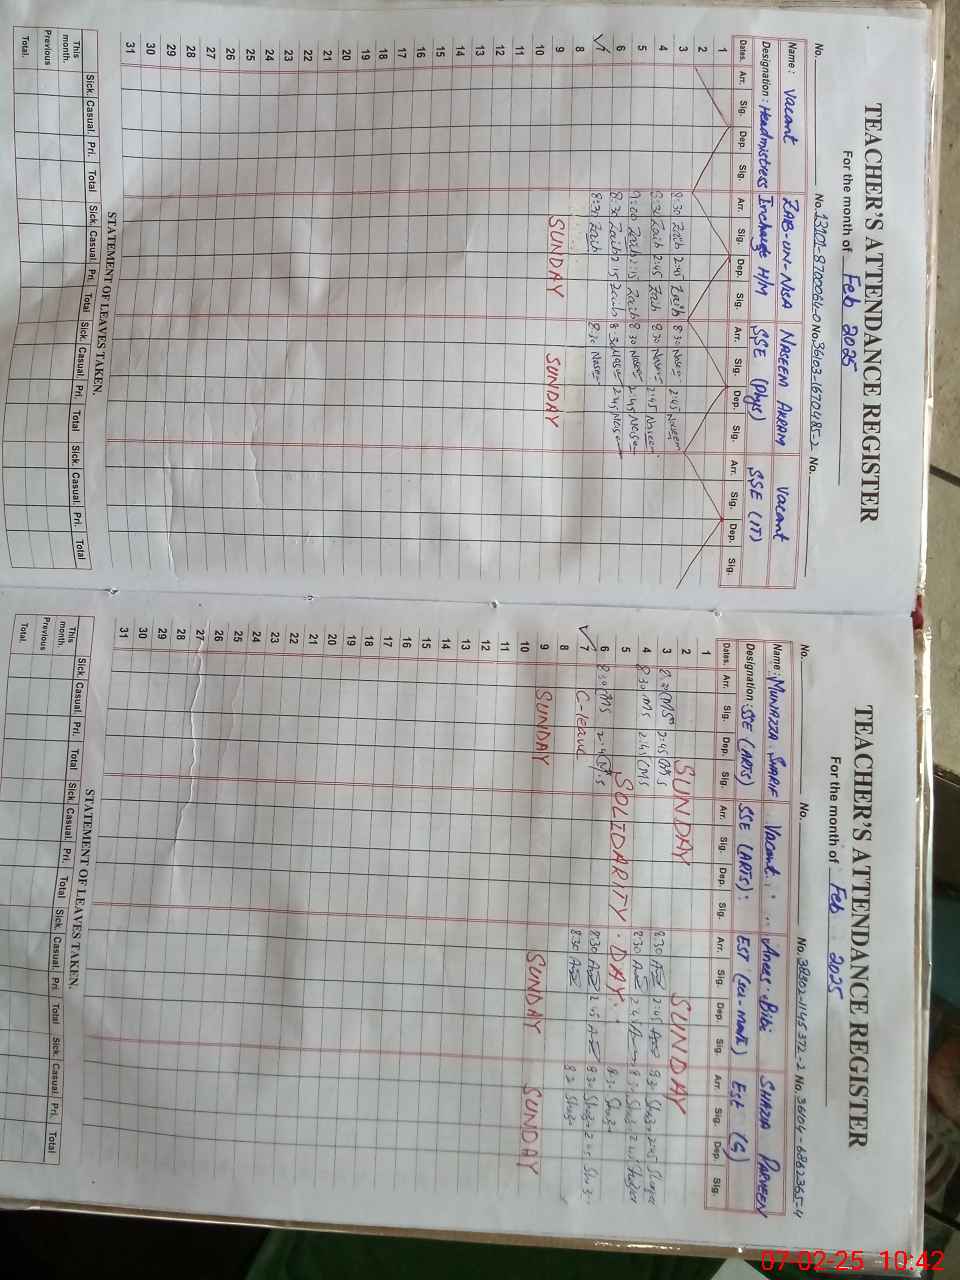 TEACHER'S ATTENDANCE REGISTER
For the month of Feb 2025
No. No. 13101-8700064-0 No. 36103-1670485-2 No.
Name: Vacant ZAIB-UN-NISA NASEEM AKRAM Vacant
Designation: Headmistress Incharge H/M SSE (Phys) SSE (IT)
Dates. Arr. Sig. Dep. Sig. Arr. Sig. Dep. Sig. Arr. Sig. Dep. Sig. Arr. Sig. Dep. Sig.
1
2
3 8:30 Zaib 2:45 Zaib 8:30 Naseem 2:45 Naseem
4 8:30 Zaib 2:45 Zaib 8:30 Naseem 2:45 Naseem
5 Zaib 2:15 Zaib 8:30 Naseem 2:45 Naseem
6 8:30 Zaib 2:15 Zaib 8:30 2:45
7 8:30 Zaib 8:30
8
9 SUNDAY SUNDAY
10
11
12
13
14
15
16
17
18
19
20
21
22
23
24
25
26
27
28
29
30
31
STATEMENT OF LEAVES TAKEN.
Sick. Casual. Pri. Total Sick. Casual. Pri. Total Sick. Casual. Pri. Total Sick. Casual. Pri. Total
This month.
Previous
Total.
TEACHER'S ATTENDANCE REGISTER
For the month of Feb 2025
No. No. No. 38302-1145372-2 No. 36104-6862365-4
Name: MUNAZZA SHARIF Vacant Anees Bibi SHAZIA PARVEEN
Designation: SSE (ARTS) SSE (ARTS) EST (sci-math) Est (G)
Dates. Arr. Sig. Dep. Sig. Arr. Sig. Dep. Sig. Arr. Sig. Dep. Sig. Arr. Sig. Dep. Sig.
1
2 SUNDAY SUNDAY
3 MS 2:45 MS 8:30 2:45 8:30
4 8:30 MS 2:45 MS 8:30 2:45 8:30
5 SOLIDARITY DAY 8:30
6 8:30 MS MS 8:30 2:45 8:30 2:45
7 C-leave 8:30
8
9 SUNDAY SUNDAY SUNDAY
10
11
12
13
14
15
16
17
18
19
20
21
22
23
24
25
26
27
28
29
30
31
STATEMENT OF LEAVES TAKEN.
Sick. Casual. Pri. Total Sick. Casual. Pri. Total Sick. Casual. Pri. Total Sick. Casual. Pri. Total
This month.
Previous
Total.
07-02-25 10:42